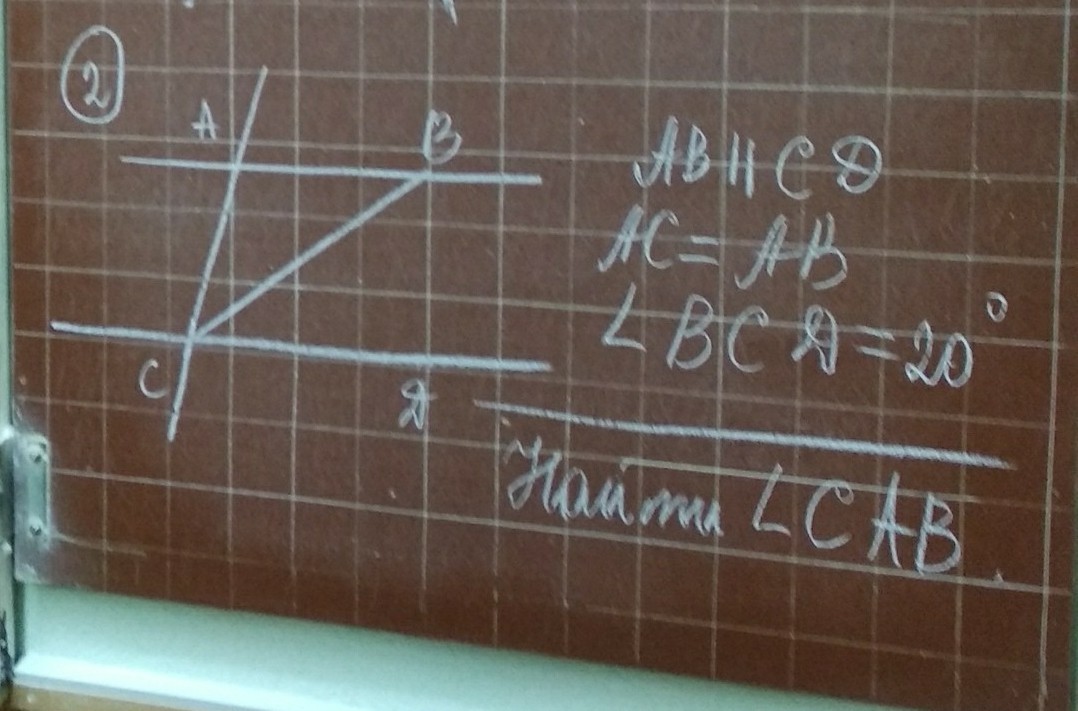 2
A
B
C
D
AB || CD
AC = AB
∠ BCD = 20°
Найти ∠ CAB.